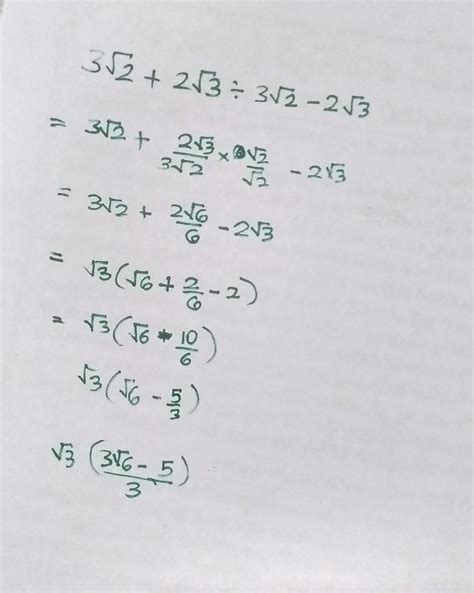 3√2 + 2√3 ÷ 3√2 − 2√3
= 3√2 + 2√3/3√2 × √2/√2 − 2√3
= 3√2 + 2√6/6 − 2√3
= √3(√6 + 2/6 − 2)
= √3(√6 − 10/6)
√3(√6 − 5/3)
√3 (3√6 − 5/3)